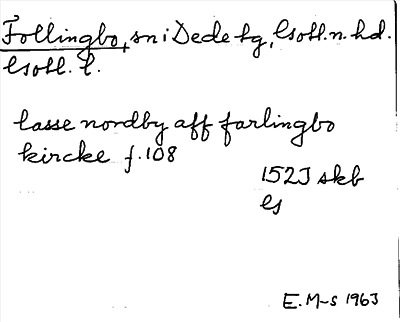 Follingbo, sn i Dede tg, Gotl. n. hd.
Gotl. l.
lasse nordby aff farlingbo
kircke f. 108
1523 skb
G
E. M-s 1963